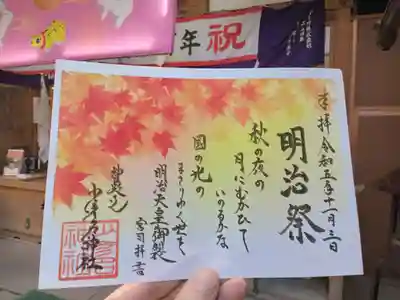 年祝
奉拝 令和五年十一月三日
明治祭
秋の夜の
月にむかひて
いのるかな
国の光の
まさりゆく世を
明治天皇御製
宮司拝書
神社